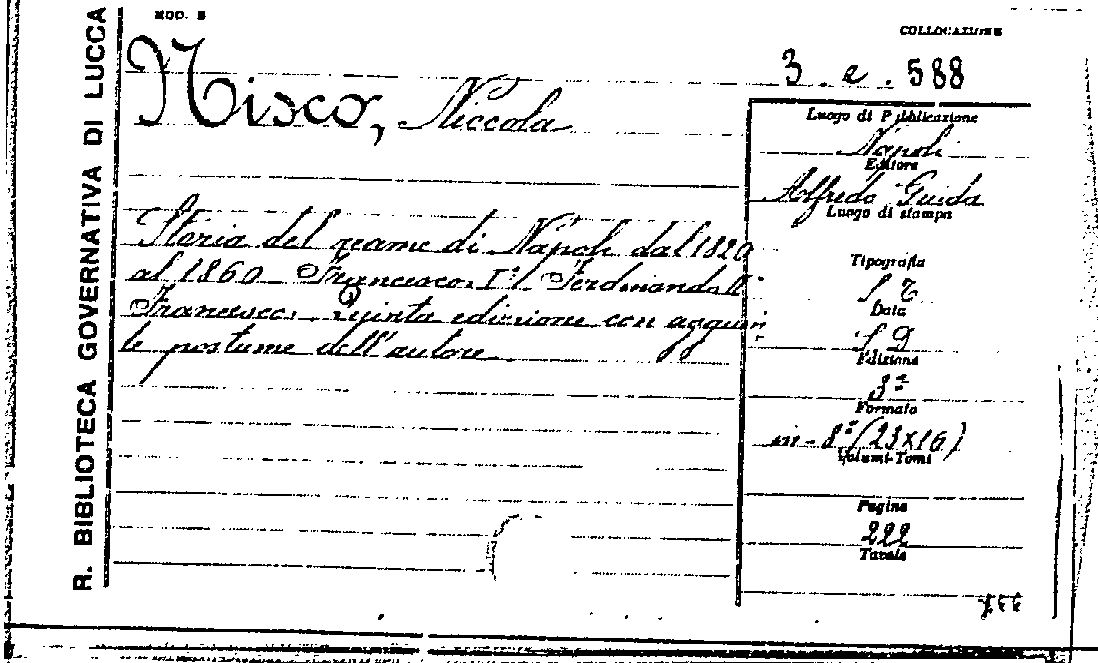 MOD. B
COLLOCAZIONE
R. BIBLIOTECA GOVERNATIVA DI LUCCA
3. e. 588
Nisco, Niccola
Storia del reame di Napoli dal 1820
al 1860 Francesco I° Ferdinando II°
Francesco. Quinta edizione con aggiun
te postume dell'autore
Luogo di Pubblicazione
Napoli
Editore
Alfredo Guida
Luogo di stampa
Tipografia
S T
Data
S D
Edizione
Formato
in-8° (23x16)
Volumi-Tomi
Pagine
222
Tavole